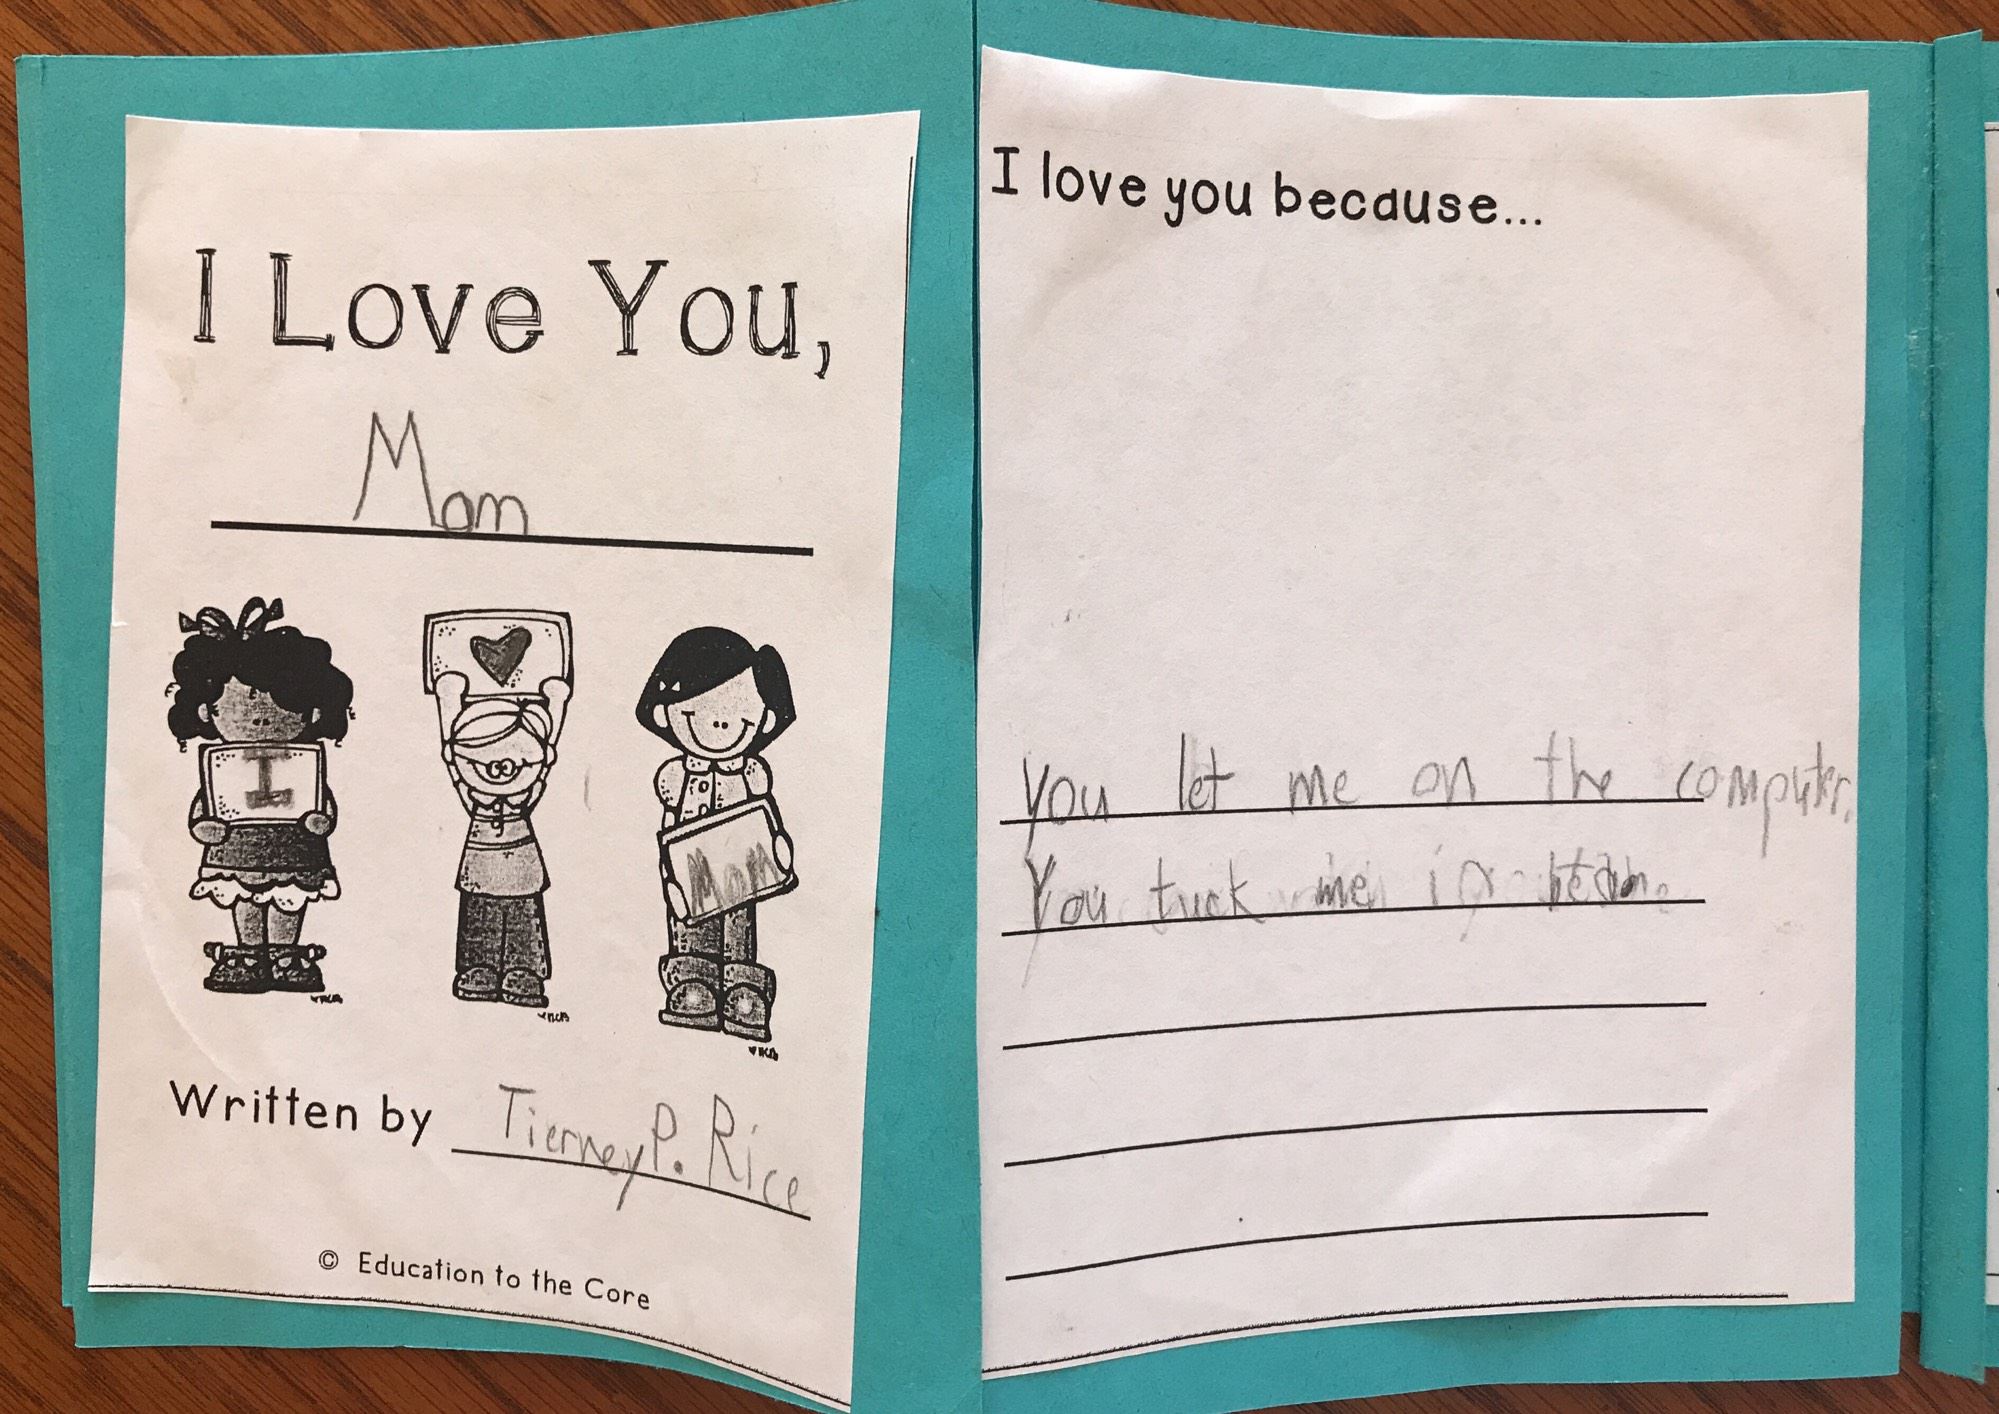 I Love You,
Mom
I
Mom
Written by Tierney P. Rice
© Education to the Core
I love you because...
You let me on the computer.
You tuck me in